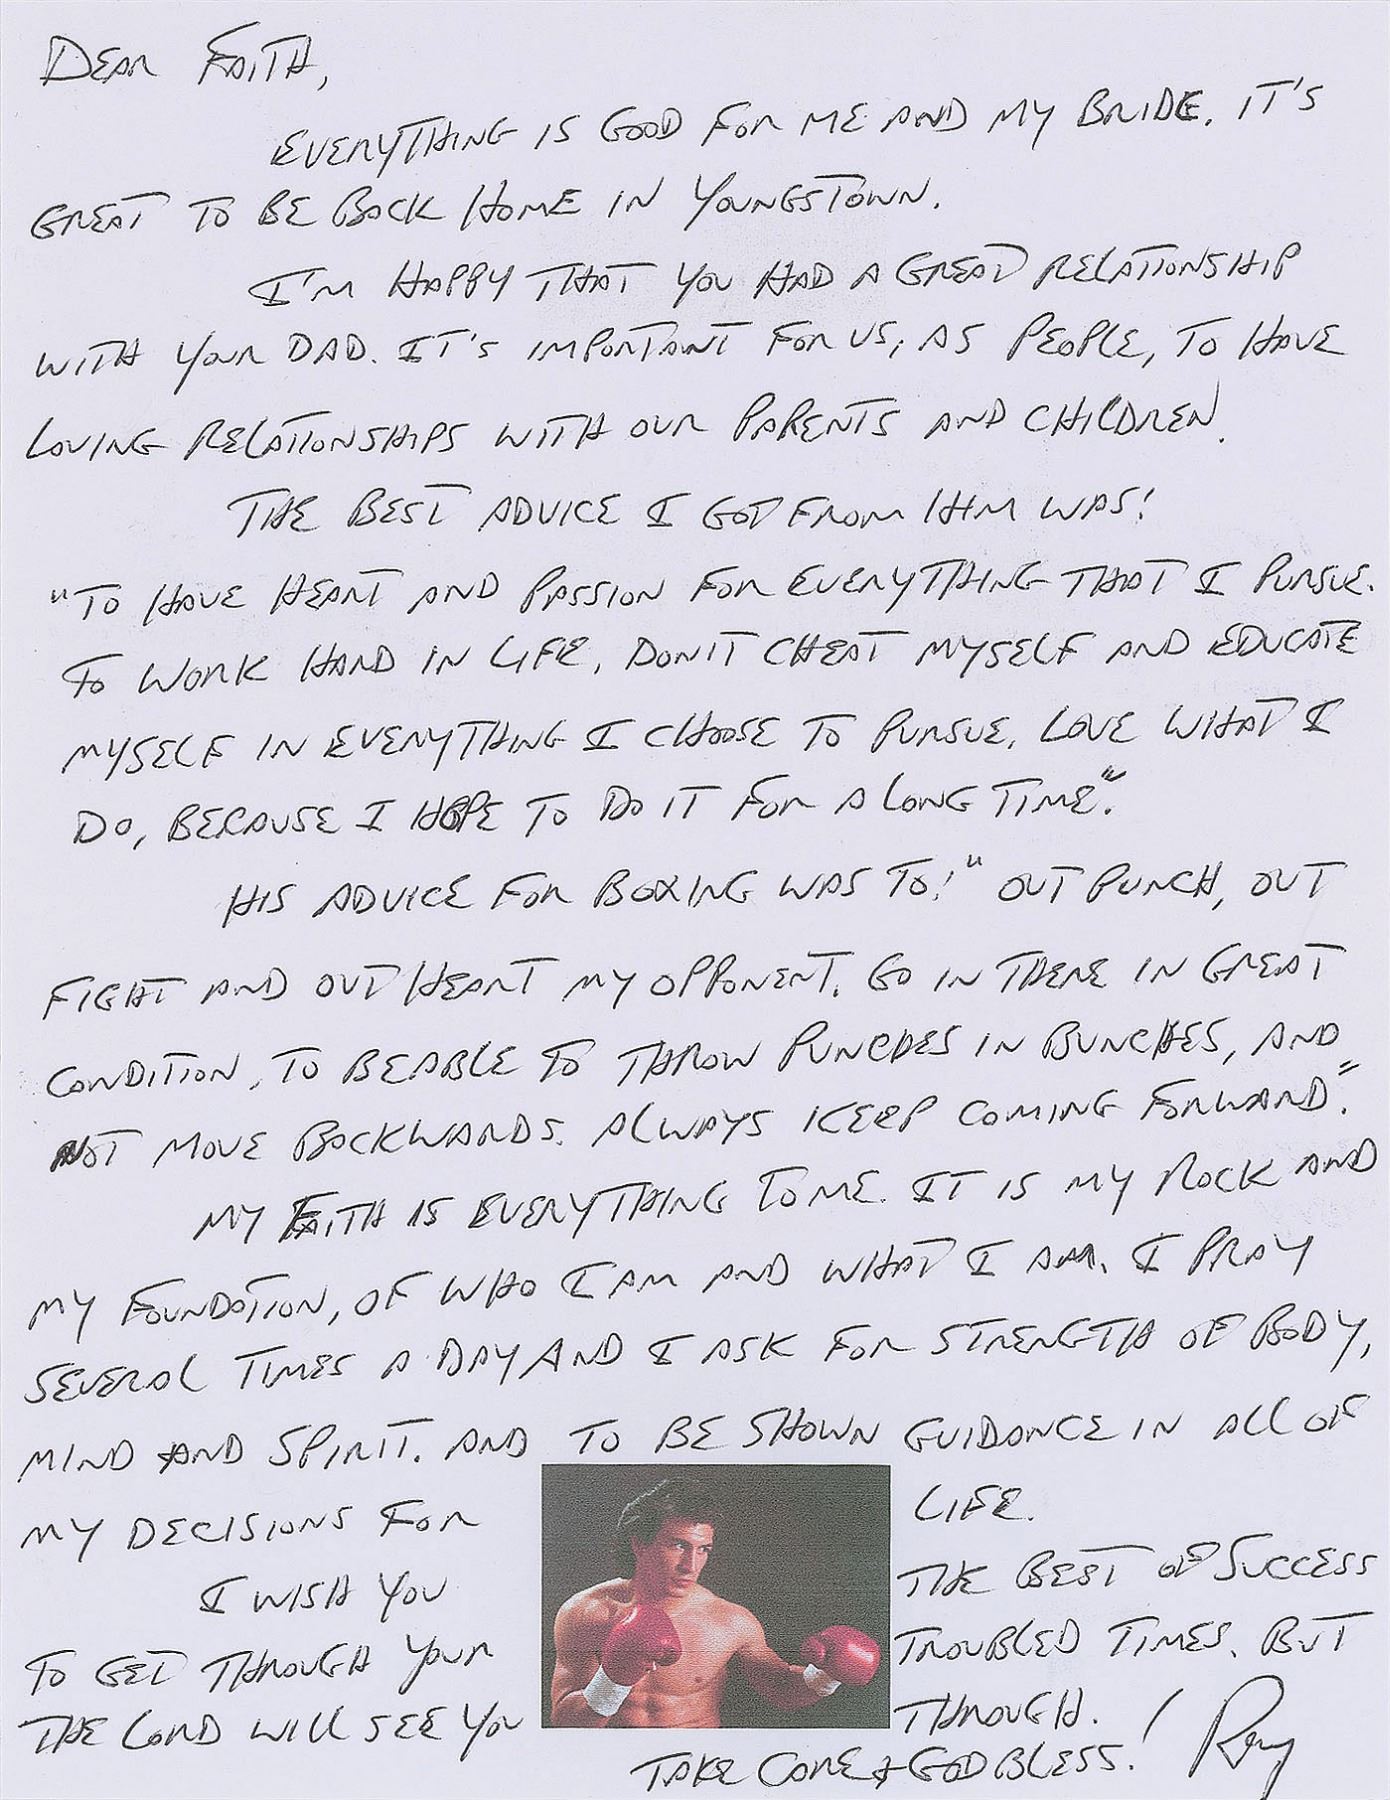 DEAR FAITH,
EVERYTHING IS GOOD FOR ME AND MY BRIDE. IT'S
GREAT TO BE BACK HOME IN YOUNGSTOWN.
I'M HAPPY THAT YOU HAD A GREAT RELATIONSHIP
WITH YOUR DAD. IT'S IMPORTANT FOR US, AS PEOPLE, TO HAVE
LOVING RELATIONSHIPS WITH OUR PARENTS AND CHILDREN.
THE BEST ADVICE I GOT FROM HIM WAS:
"TO HAVE HEART AND PASSION FOR EVERYTHING THAT I PURSUE.
TO WORK HARD IN LIFE, DON'T CHEAT MYSELF AND EDUCATE
MYSELF IN EVERYTHING I CHOOSE TO PURSUE. LOVE WHAT I
DO, BECAUSE I HOPE TO DO IT FOR A LONG TIME".
HIS ADVICE FOR BOXING WAS TO: "OUT PUNCH, OUT
FIGHT AND OUT HEART MY OPPONENT. GO IN THERE IN GREAT
CONDITION, TO BE ABLE TO THROW PUNCHES IN BUNCHES, AND
NOT MOVE BACKWARDS. ALWAYS KEEP COMING FORWARD."
MY FAITH IS EVERYTHING TO ME. IT IS MY ROCK AND
MY FOUNDATION, OF WHO I AM AND WHAT I AM. I PRAY
SEVERAL TIMES A DAY AND I ASK FOR STRENGTH OF BODY,
MIND AND SPIRIT. AND TO BE SHOWN GUIDANCE IN ALL OF
MY DECISIONS FOR LIFE.
I WISH YOU THE BEST OF SUCCESS
TO GET THROUGH YOUR TROUBLED TIMES. BUT
THE LORD WILL SEE YOU THROUGH.
TAKE CARE & GOD BLESS! Ray